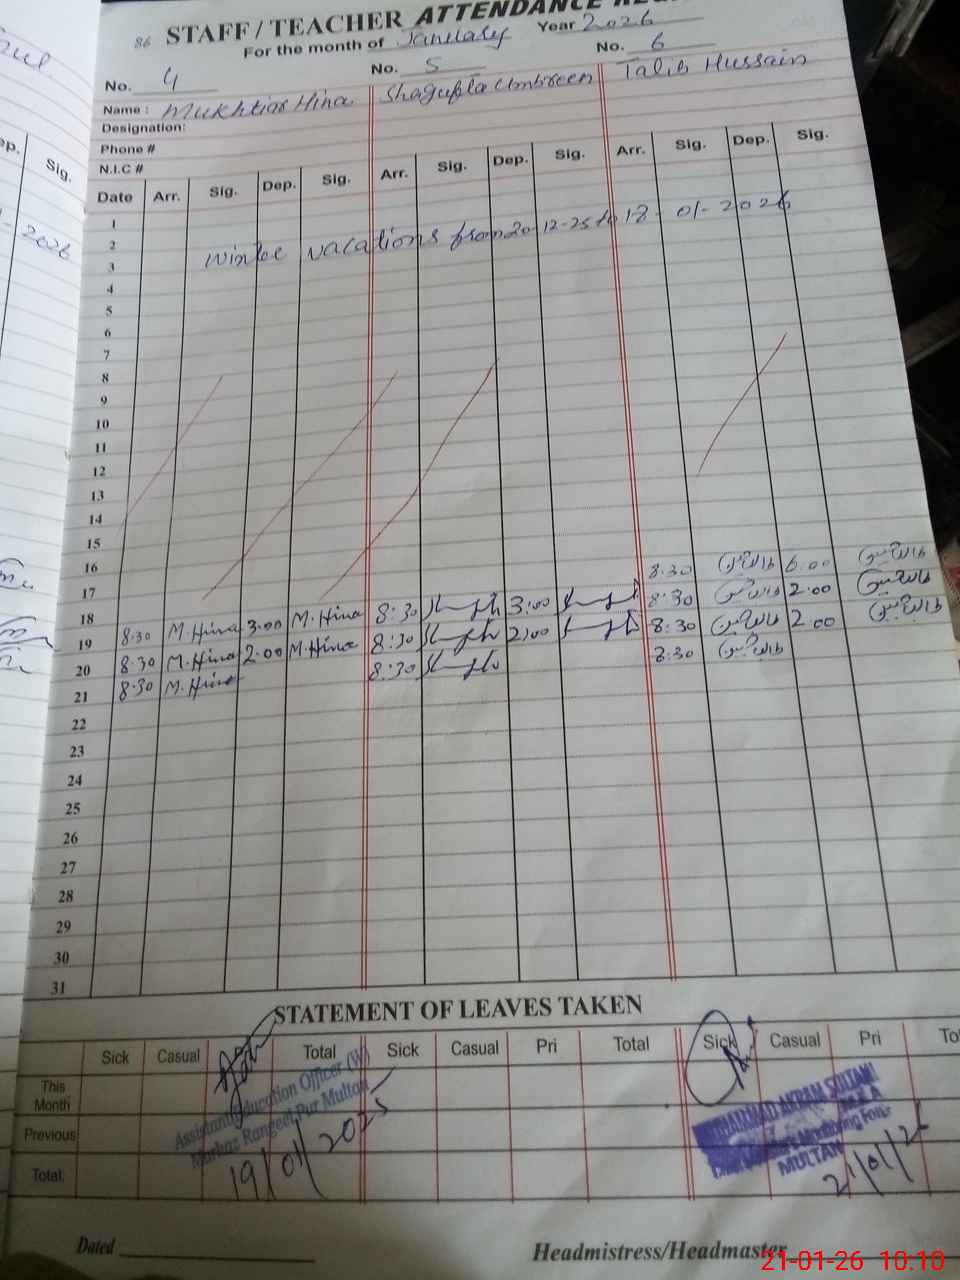 86 STAFF / TEACHER ATTENDANCE
For the month of January Year 2026
No. 4 No. 5 No. 6
Name: Mukhtiar Hina Shagufta Umbreen Talib Hussain
Designation:
Phone #
N.I.C #
Date Arr. Sig. Dep. Sig. Arr. Sig. Dep. Sig. Arr. Sig. Dep. Sig.
1
2
3 winter vacations from 20-12-25 to 18-01-2026
4
5
6
7
8
9
10
11
12
13
14
15
16
17
18
19 8:30 M.Hina 3:00 M.Hina 8:30 3:00 8:30 طالب حسین 6:00 طالب حسین
20 8:30 M.Hina 2:00 M.Hina 8:30 2:00 8:30 طالب حسین 2:00 طالب حسین
21 8:30 M.Hina 8:30 8:30 طالب حسین 2:00 طالب حسین
8:30 طالب حسین
22
23
24
25
26
27
28
29
30
31
STATEMENT OF LEAVES TAKEN
Sick Casual Total Sick Casual Pri Total Sick Casual Pri
This Month
Previous
Total.
Assistant Education Officer (W)
Markaz Rangeel Pur Multan
19/01/2025
MUHAMMAD AKRAM SULTANI
M.E.A
Monitoring Force
MULTAN
21/01/26
Dated
Headmistress/Headmaster
21-01-26 10:10